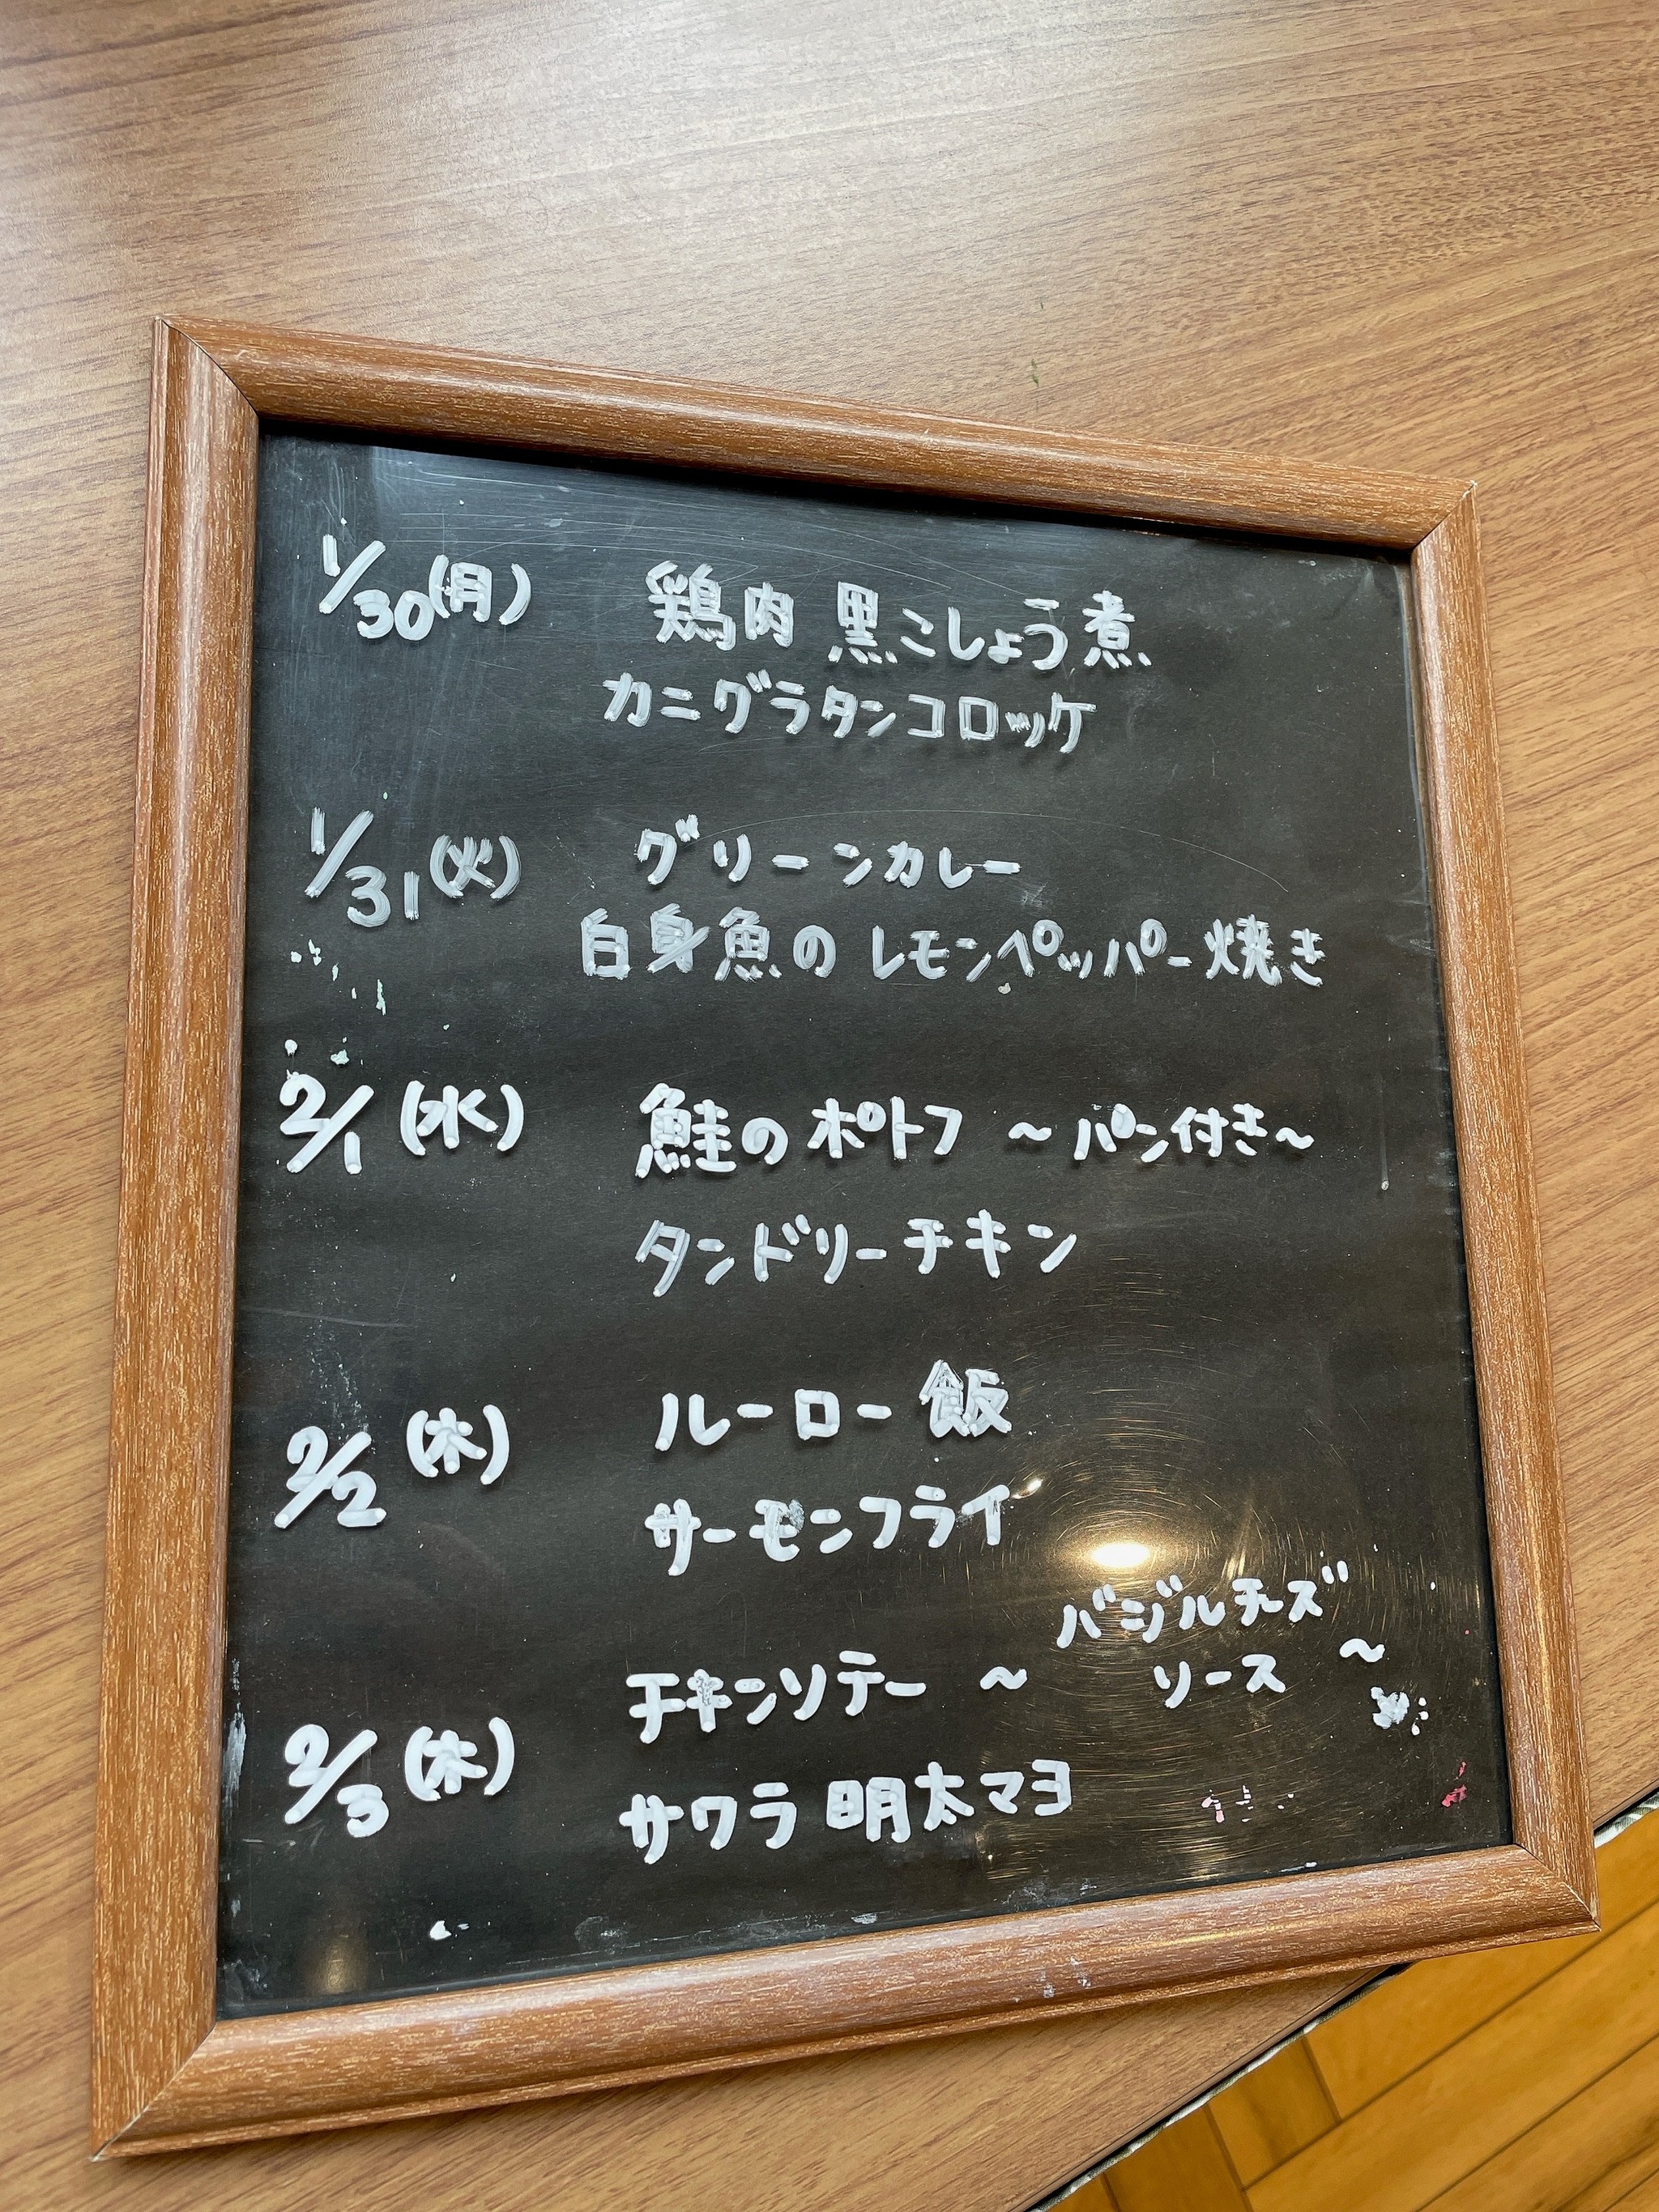 1/30(月) 鶏肉 黒こしょう煮
カニグラタンコロッケ
1/31(火) グリーンカレー
白身魚のレモンペッパー焼き
2/1(水) 鮭のポトフ ～パン付き～
タンドリーチキン
2/2(木) ルーロー飯
サーモンフライ
2/3(木) チキンソテー ～バジルチーズソース～
サワラ明太マヨ